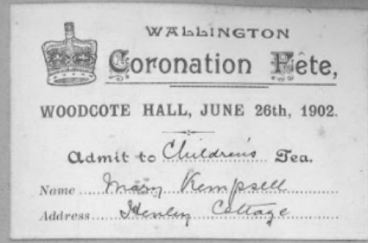 WALLINGTON
Coronation Fête,
WOODCOTE HALL, JUNE 26th, 1902.
Admit to Children's Tea.
Name Mary Kempsell
Address Henley Cottage